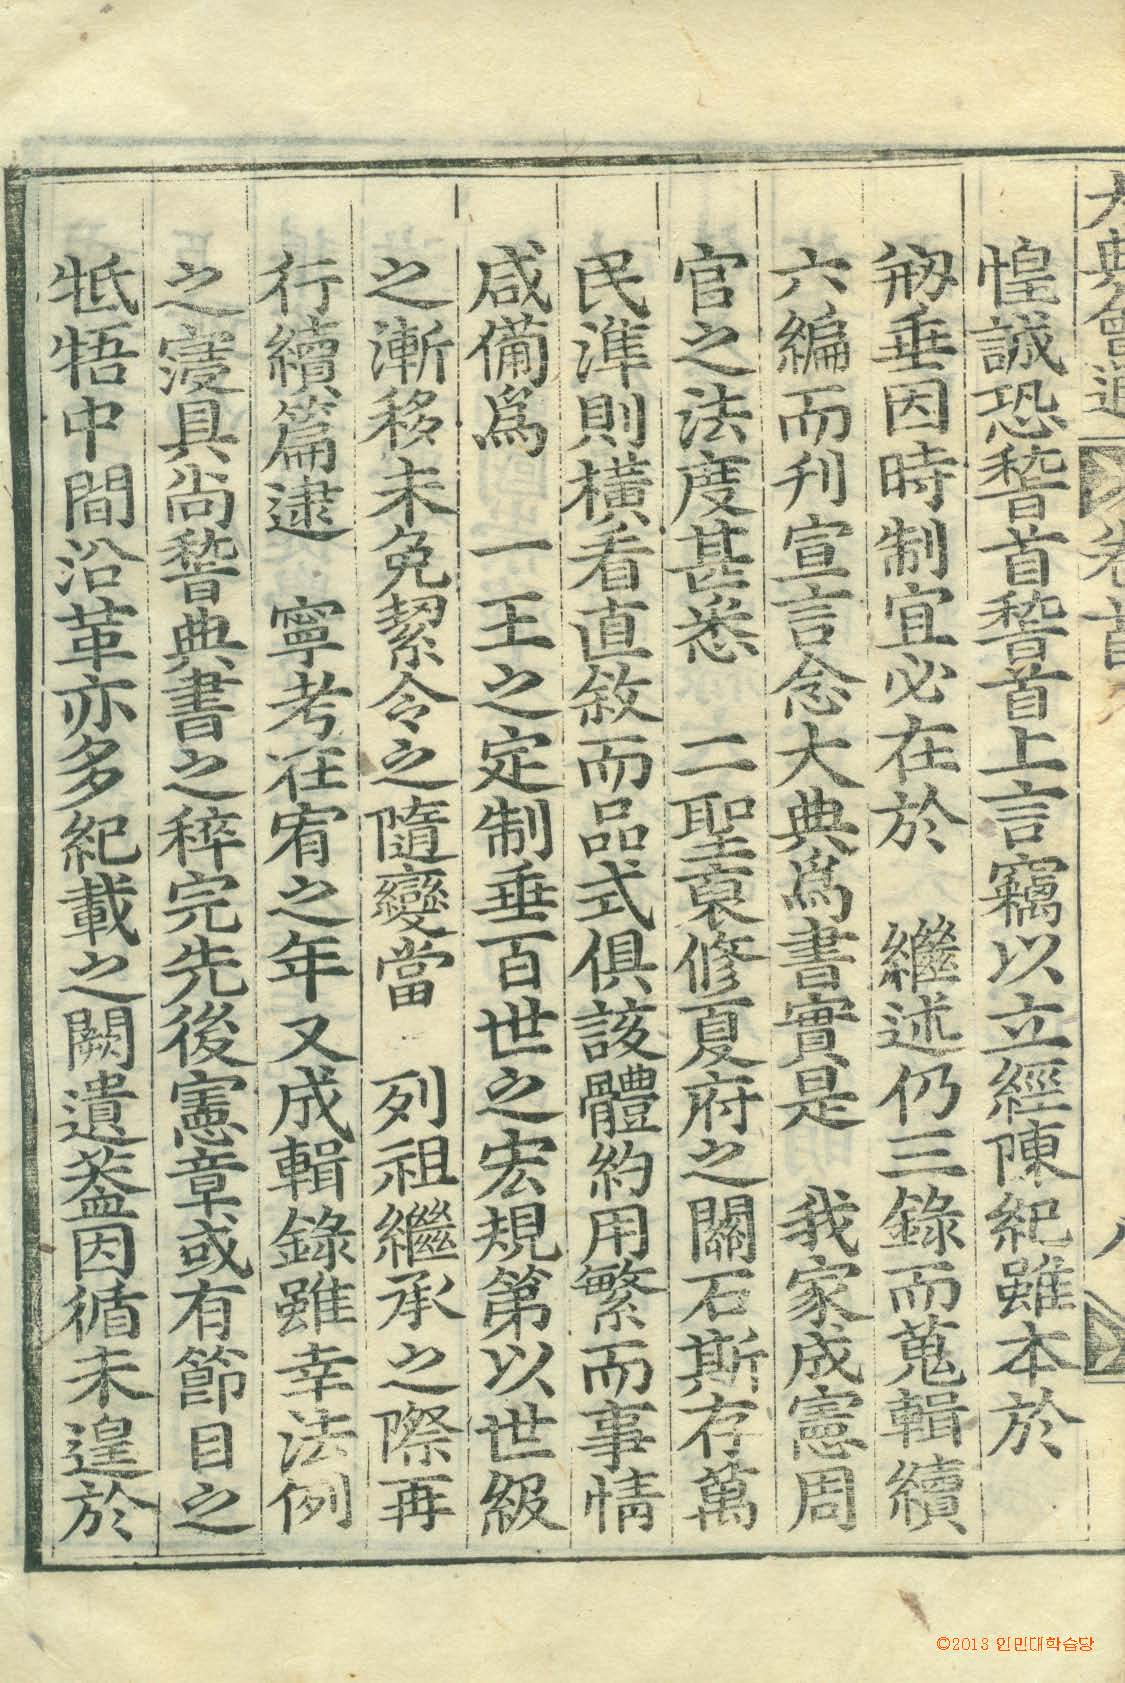 大典會通 卷首 八
惶誠恐稽首稽首上言竊以立經陳紀雖本於
剏垂因時制宜必在於 繼述仍三錄而蒐輯續
六編而刊宣言念大典爲書實是 我家成憲周
官之法度甚悉 二聖裒修夏府之關石斯存萬
民準則橫看直敘而品式俱該體約用繁而事情
咸備爲 一王之定制垂百世之宏規第以世級
之漸移未免絜令之隨變當 列祖繼承之際再
行續篇逮 寧考在宥之年又成輯錄雖幸法例
之寖具尙稽典書之稡完先後憲章或有節目之
牴牾中間沿革亦多紀載之闕遺葢因循未遑於
©2013 인민대학습당